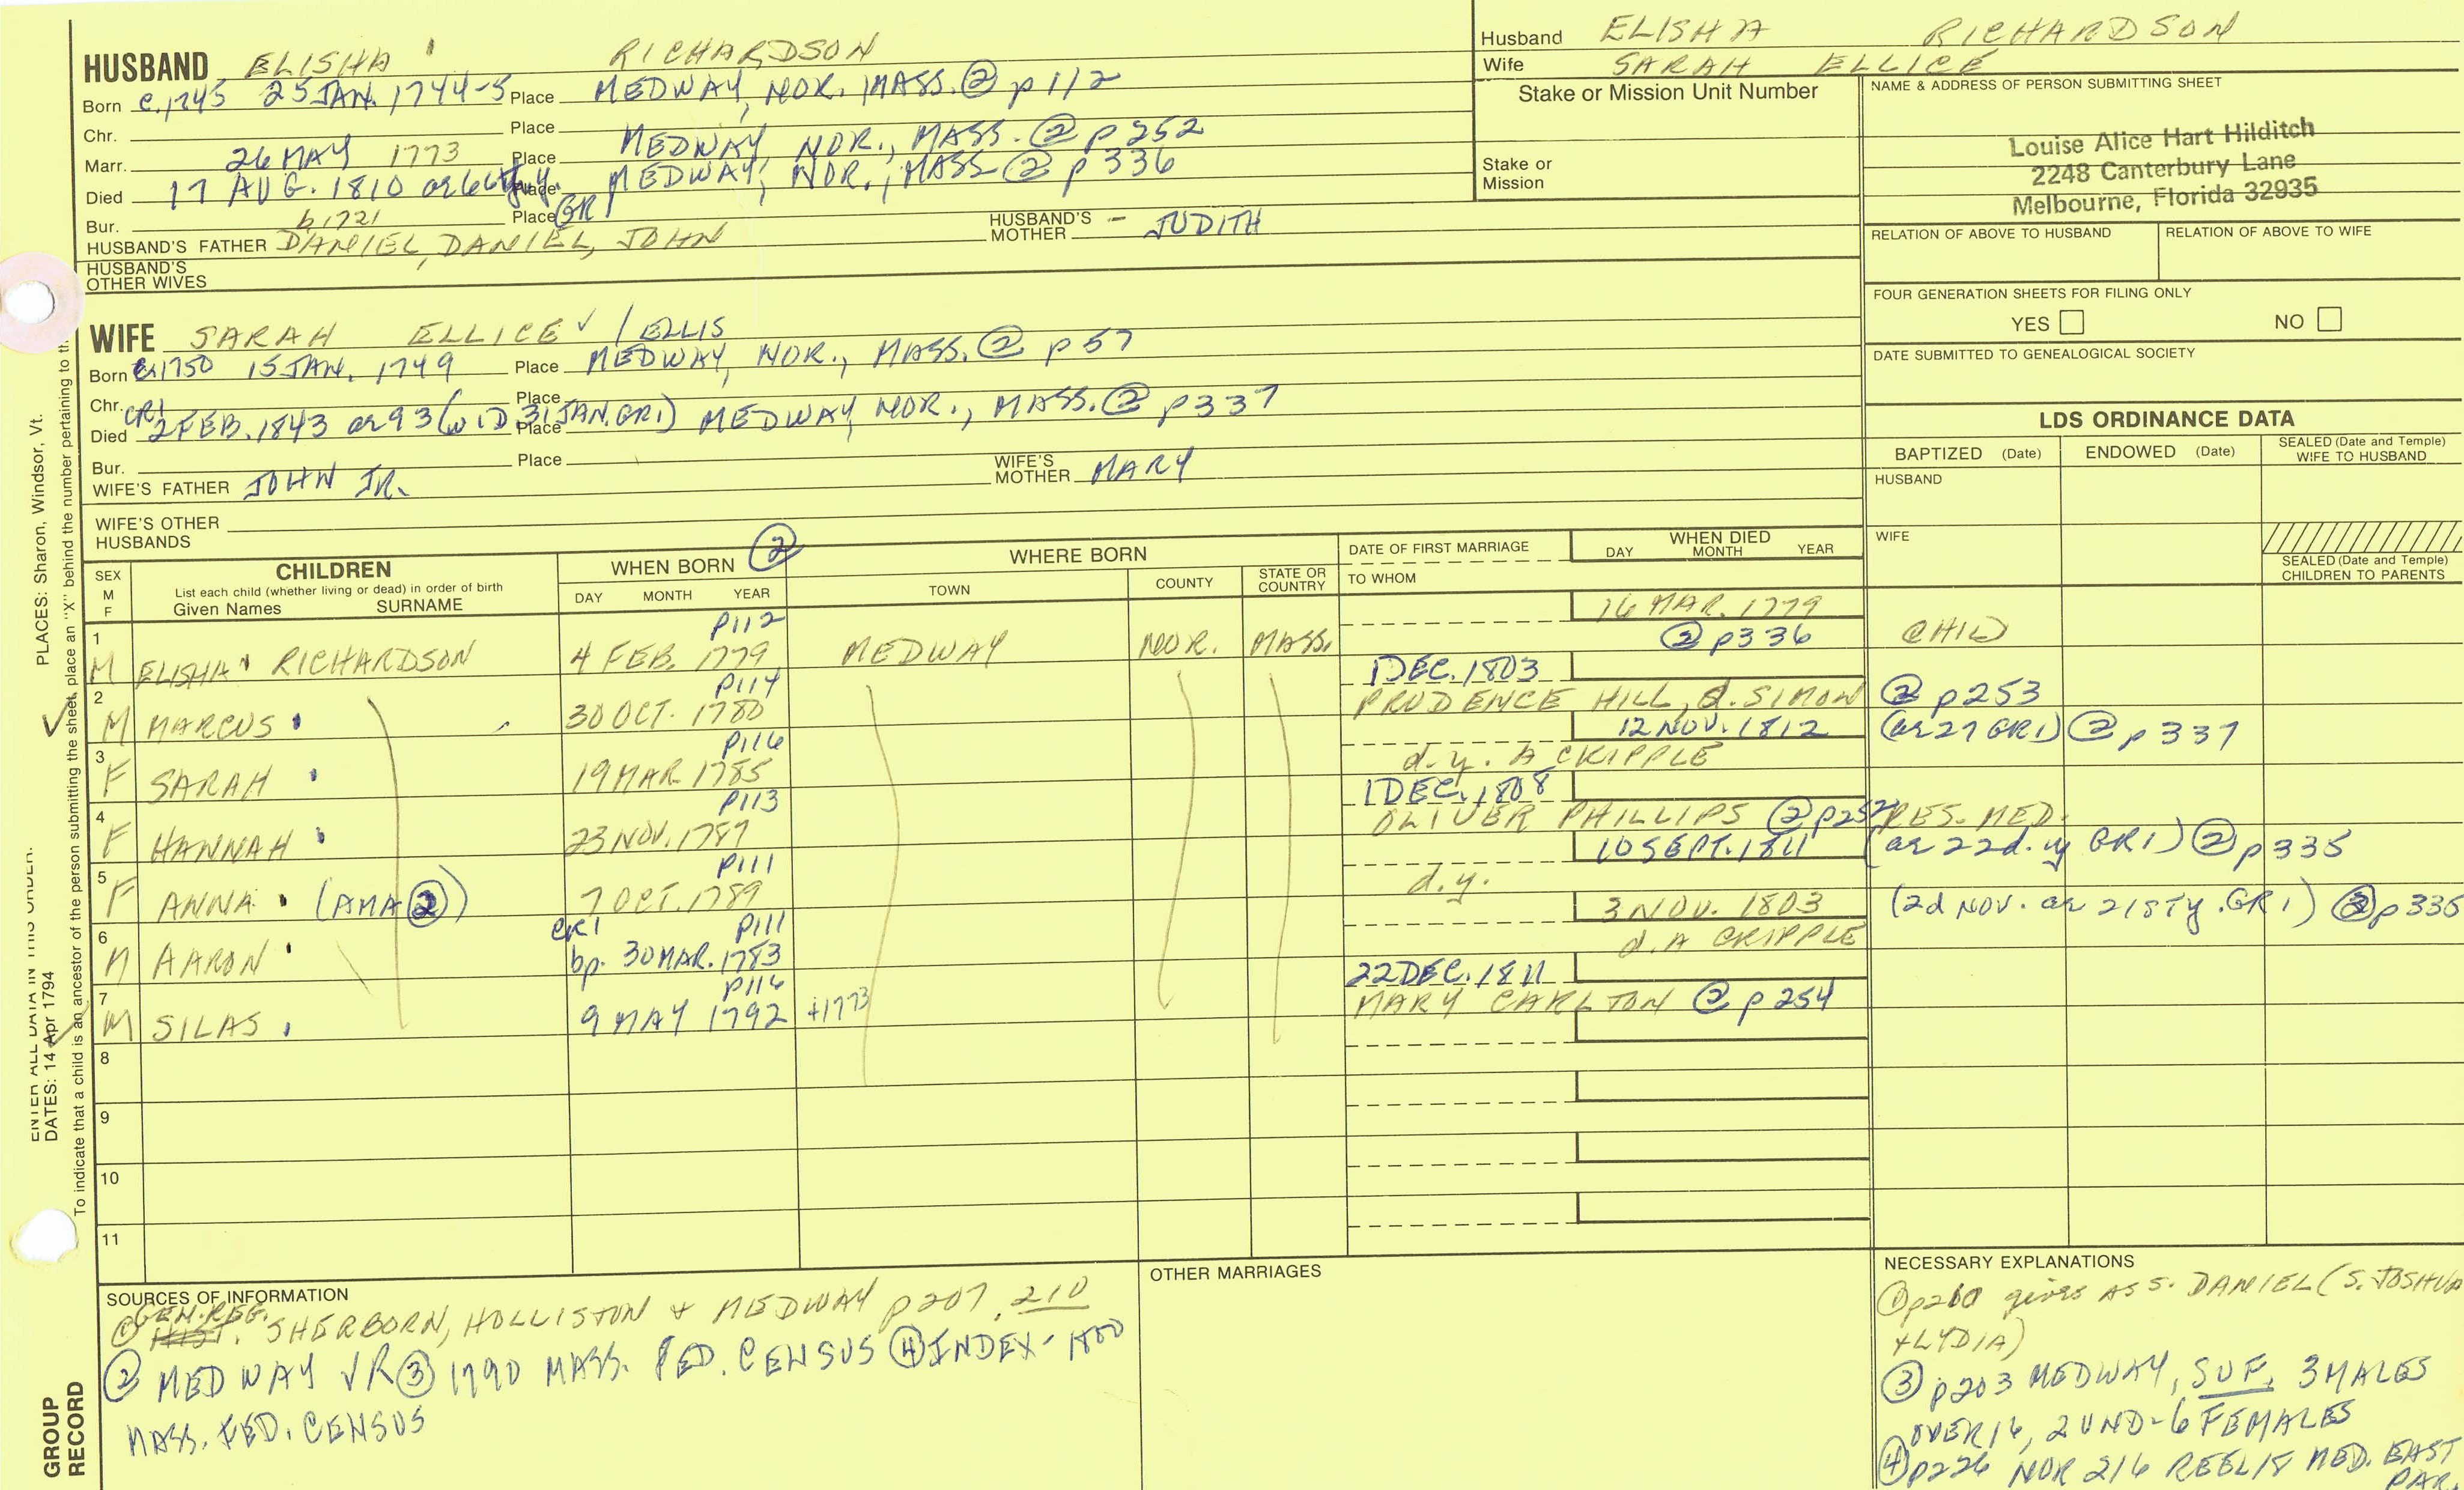 HUSBAND ELISHA RICHARDSON
Born c.1745 25 JAN. 1744-5 Place MEDWAY, NOR. MASS. ② p 112
Chr. Place
Marr. 26 MAY 1773 Place MEDWAY, NOR., MASS. ② p 252
Died 17 AUG. 1810 Place MEDWAY, NOR., MASS ② p 336
Bur. b.1721 Place GR1
HUSBAND'S FATHER DANIEL, DANIEL, JOHN HUSBAND'S MOTHER - JUDITH
HUSBAND'S OTHER WIVES
WIFE SARAH ELLICE ✓ / ELLIS
Born c.1750 15 JAN. 1749 Place MEDWAY, NOR., MASS. ② p 57
Chr. CR1 Place
Died 2 FEB. 1843 ae 93 (wid. 31 JAN. GR1) Place MEDWAY, NOR., MASS. ② p 337
Bur. Place
WIFE'S FATHER JOHN JR. WIFE'S MOTHER MARY
WIFE'S OTHER HUSBANDS
Husband ELISHA RICHARDSON
Wife SARAH ELLICE
Stake or Mission Unit Number
Stake or Mission
NAME & ADDRESS OF PERSON SUBMITTING SHEET
Louise Alice Hart Hilditch
2248 Canterbury Lane
Melbourne, Florida 32935
RELATION OF ABOVE TO HUSBAND RELATION OF ABOVE TO WIFE
FOUR GENERATION SHEETS FOR FILING ONLY
YES NO
DATE SUBMITTED TO GENEALOGICAL SOCIETY
LDS ORDINANCE DATA
BAPTIZED (Date) ENDOWED (Date) SEALED (Date and Temple) WIFE TO HUSBAND
HUSBAND
WIFE
SEALED (Date and Temple) CHILDREN TO PARENTS
SEX M F CHILDREN WHEN BORN ② WHERE BORN DATE OF FIRST MARRIAGE WHEN DIED
List each child (whether living or dead) in order of birth
Given Names SURNAME DAY MONTH YEAR TOWN COUNTY STATE OR COUNTRY TO WHOM DAY MONTH YEAR
P112 16 MAR. 1779
1 M ELISHA RICHARDSON 4 FEB. 1779 MEDWAY NOR. MASS. ② p336 CHILD
P114 1 DEC. 1803
2 M MARCUS 30 OCT. 1780 PRUDENCE HILL, d. SIMON ② p253
P116 12 NOV. 1812 (ae 27 GR1) ② p 337
3 F SARAH 19 MAR 1785 d.y. A CRIPPLE
P113 1 DEC. 1808
4 F HANNAH 23 NOV. 1787 OLIVER PHILLIPS ② p252 RES. MED.
P111 10 SEPT. 1811 (ae 22d. y GR1) ② p 335
5 F ANNA (AMA ②) 7 OCT. 1789 d.y.
CR1 P111 3 NOV. 1803 (2d NOV. ae 21st y. GR1) ② p 335
6 M AARON bp. 30 MAR. 1783 d. A CRIPPLE
P116 22 DEC. 1811
7 M SILAS 9 MAY 1792 +1773 MARY CARLTON ② p 254
8
9
10
11
SOURCES OF INFORMATION
① GEN. REG. HIST. SHERBORN, HOLLISTON + MEDWAY p 207, 210
② MEDWAY VR ③ 1790 MASS. FED. CENSUS ④ INDEX - 1800
MASS. FED. CENSUS
OTHER MARRIAGES
NECESSARY EXPLANATIONS
① p210 gives AS S. DANIEL (S. JOSHUA
+ LYDIA)
③ p203 MEDWAY, SUF. 3 MALES
OVER 16, 2 UND - 6 FEMALES
④ p226 NOR 216 REEL 18 MED. EAST
PAR.
PLACES: Sharon, Windsor, Vt.
ENTER ALL DATA IN THIS ORDER:
DATES: 14 Apr 1794
To indicate that a child is an ancestor of the person submitting the sheet, place an "X" behind the number pertaining to
GROUP RECORD